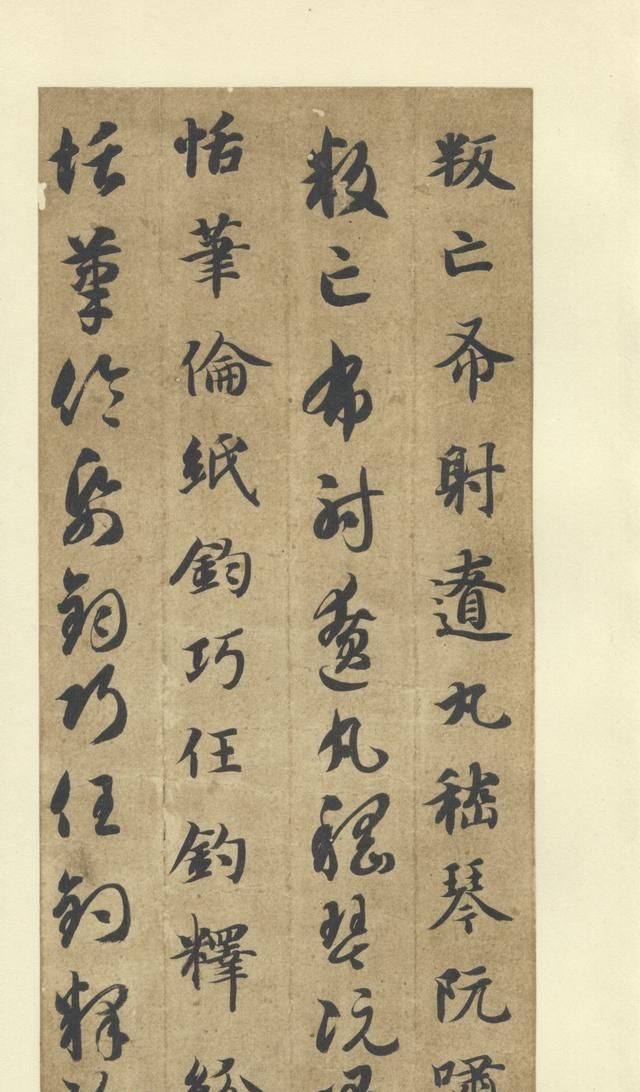 叛亡布射遼丸嵇琴阮嘯
叛亡布射遼丸嵇琴阮
恬筆倫紙鈞巧任釣釋紛
恬筆倫紙鈞巧任釣釋